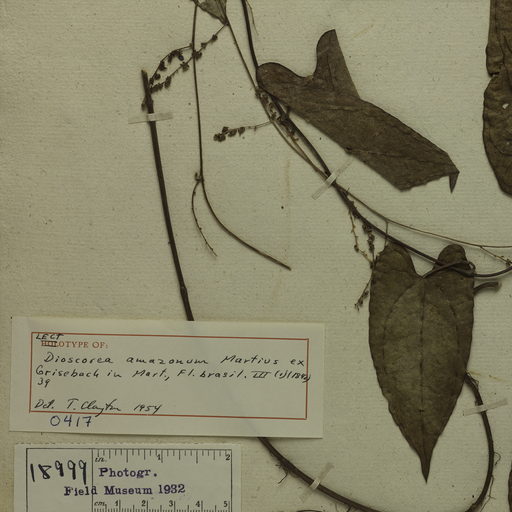 LECT
TYPE OF:
Dioscorea amazonum Martius ex
Grisebach in Mart., Fl. brasil. III (1) (1842)
39
Det. T. Clayton 1954
0417
in. 1 2
18999 Photogr.
Field Museum 1932
cm. 1 2 3 4 5